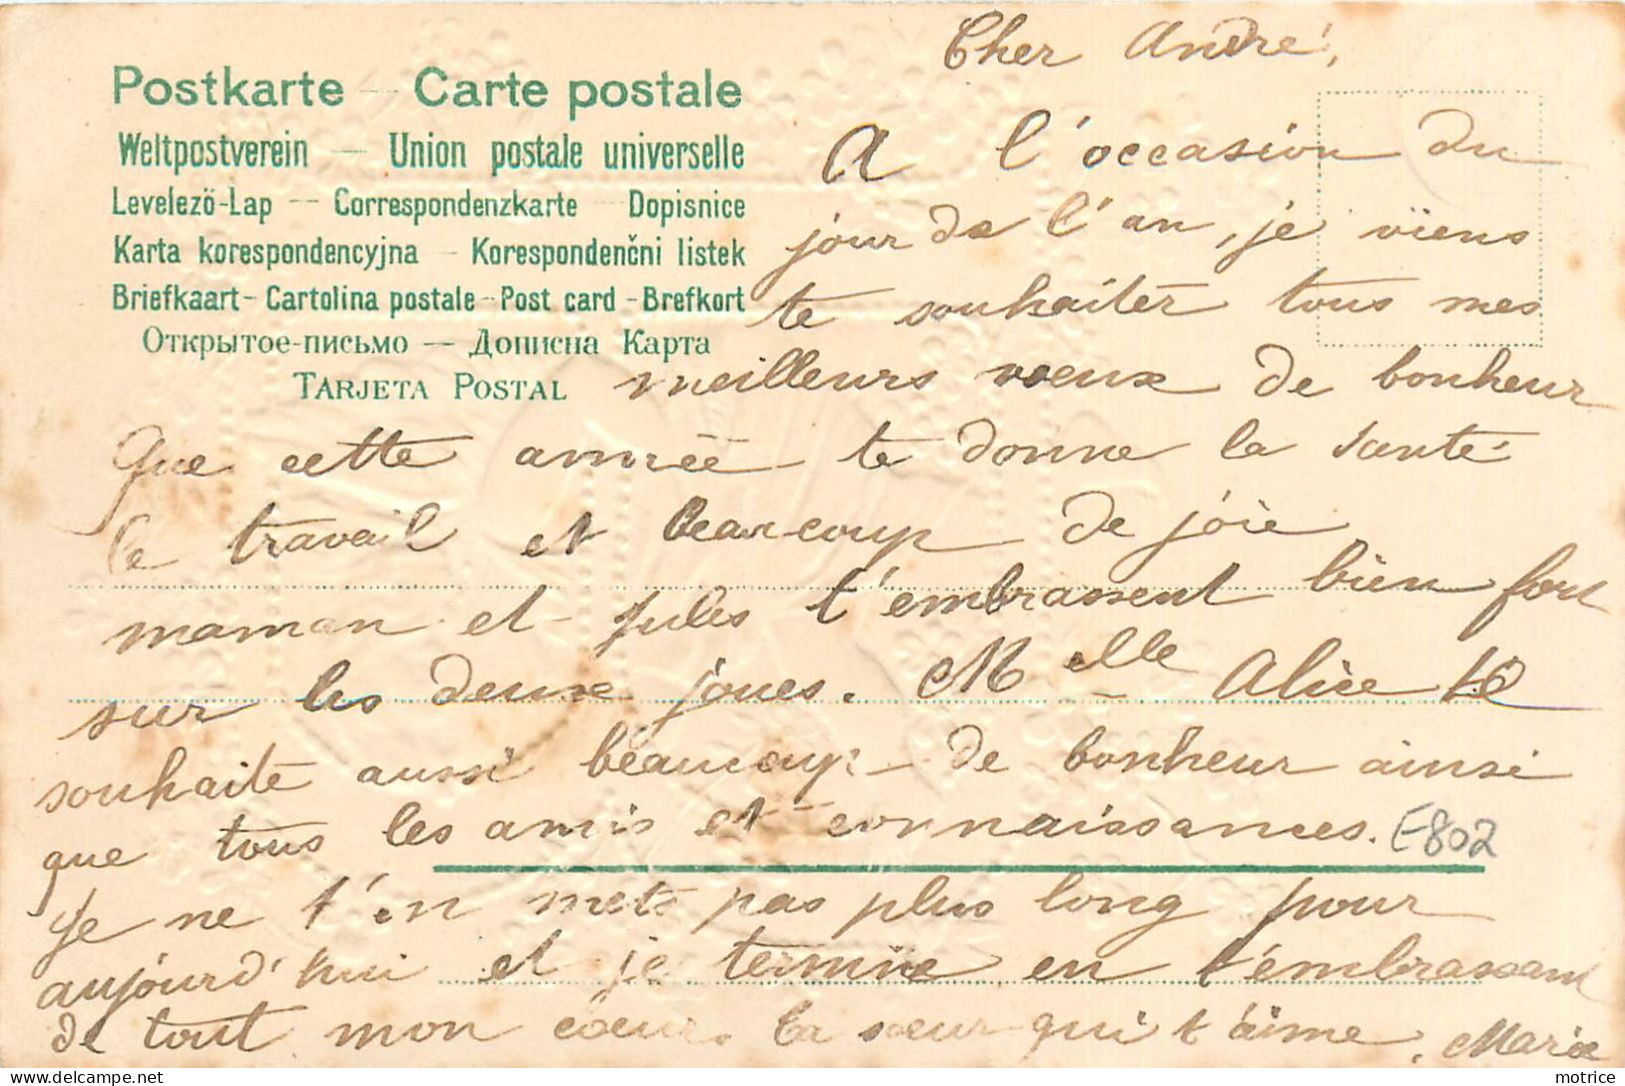 Cher André,
Postkarte - Carte postale
Weltpostverein - Union postale universelle
Levelezö-Lap - Correspondenzkarte - Dopisnice
Karta korespondencyjna - Korespondenčni listek
Briefkaart - Cartolina postale - Post card - Brefkort
Открытое-письмо — Дописна Карта
TARJETA POSTAL
A l'occasion du
jour de l'an, je viens
te souhaiter tous mes
meilleurs voeux de bonheur
Que cette année te donne la santé
le travail et beaucoup de joie
maman et Jules t'embrassent bien fort
sur les deux joues. Melle Alice te
souhaite aussi beaucoup de bonheur ainsi
que tous les amis et connaissances.
E802
Je ne t'en mets pas plus long pour
aujourd'hui et je termine en t'embrassant
de tout mon coeur. Ta soeur qui t'aime. Marie
motrice